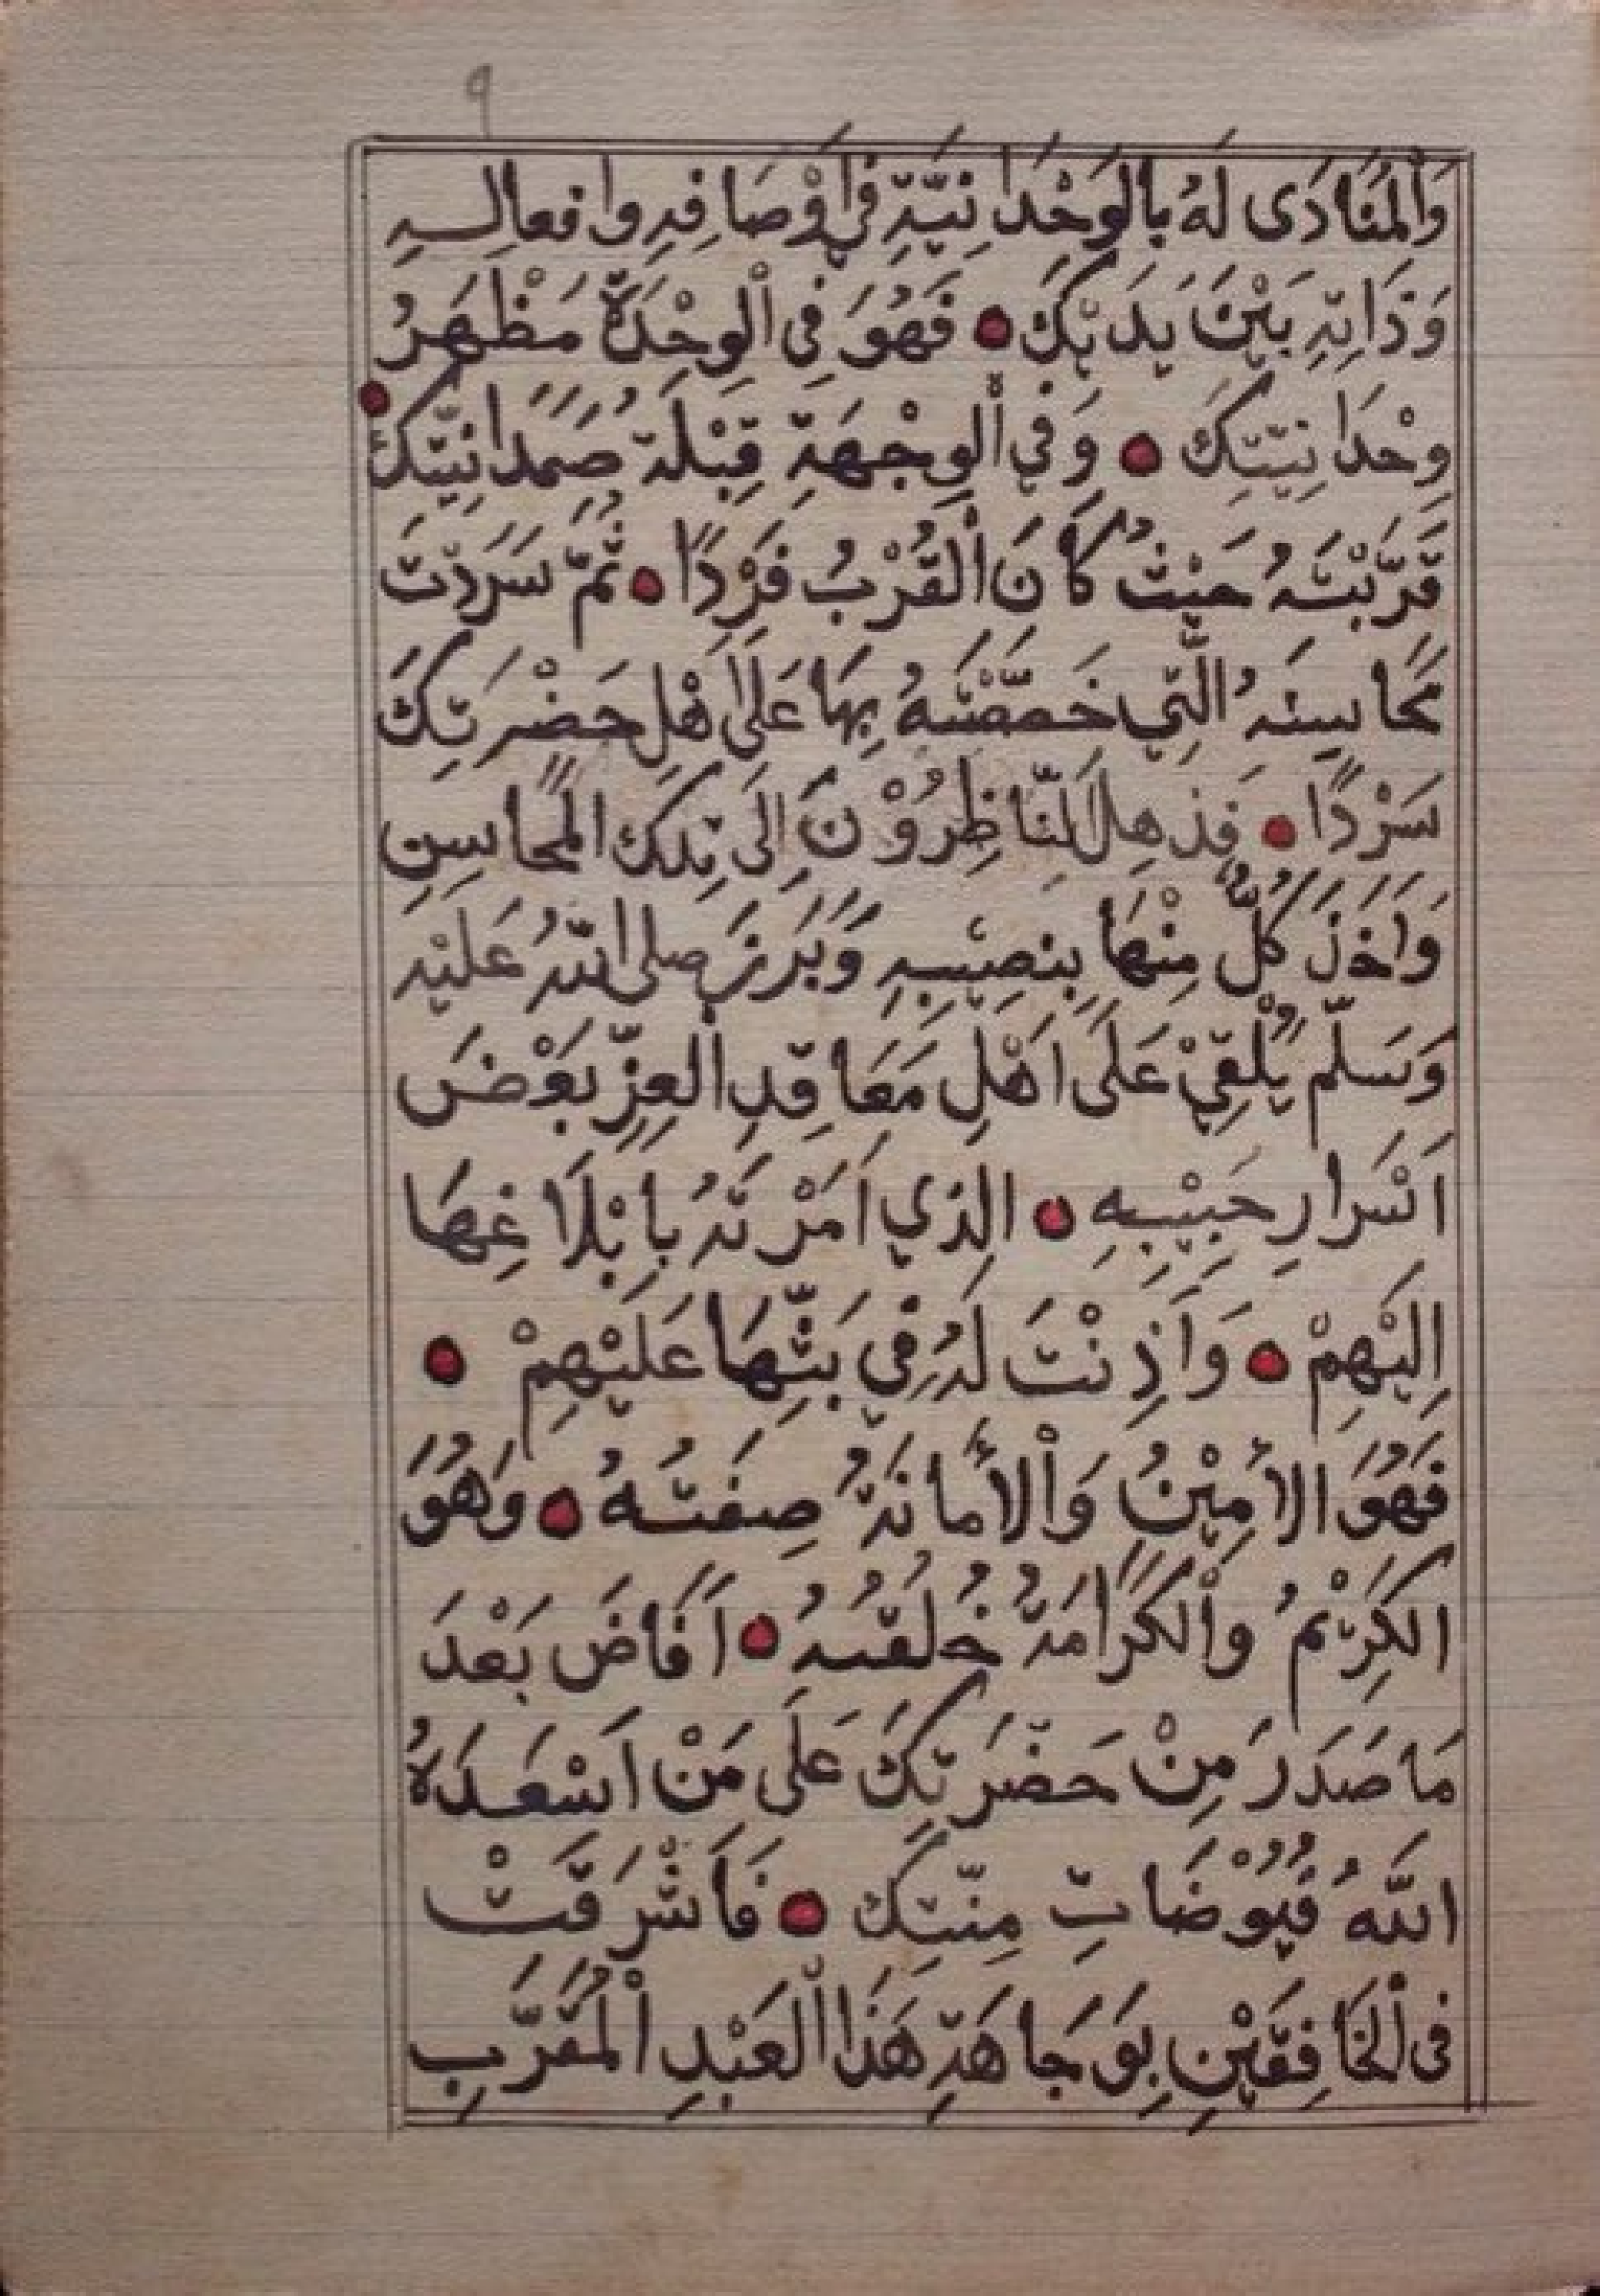 ٩
وَالْمُنَادَى لَهُ بِالْوَحْدَانِيَّةِ فِي اَوْصَافِهِ وافعالِهِ
وَذَاتِهِ بَيْنَ يَدَيْكَ • فَهُوَ فِي الْوِحْدَةِ مَظْهَرُ
وِحْدَانِيَّتِكَ • وَفِي الْوِجْهَةِ قِبْلَةُ صَمَدَانِيَّتِكَ •
قَرَّبْتَهُ حَيْثُ كَانَ الْقُرْبُ فَرْدًا • ثُمَّ سَرَدْتَ
مَحَاسِنَهُ الَّتِي خَصَّصْتَهُ بِهَا عَلَى اَهْلِ حَضْرَتِكَ
سَرْدًا • فَذَهِلَ النَّاظِرُوْنَ اِلَى تِلْكَ الْمَحَاسِنِ
وَاَخَذَ كُلٌّ مِنْهَا بِنَصِيْبِهِ وَبَرَزَ صلى اللّٰهُ عَلَيْهِ
وَسَلَّمَ يُلْقِيْ عَلَى اَهْلِ مَعَاقِدِ الْعِزِّ بَعْضَ
اَسْرَارِ حَبِيْبِهِ • الذي اَمَرْتَهُ بِاِبْلَاغِهَا
اِلَيْهِمْ • وَاَذِنْتَ لَهُ فِي بَثِّهَا عَلَيْهِمْ •
فَهُوَ الأَمِيْنُ وَالْأَمانَةُ صِفَتُهُ • وَهُوَ
الكَرِيْمُ وَالْكَرَامَةُ خُلُقُهُ • اَفَاضَ بَعْدَ
مَا صَدَرَ مِنْ حَضْرَتِكَ عَلَى مَنْ اَسْعَدَهُ
اللّٰهُ فُيُوْضَاتِ مِنَّتِكَ • فَاَشْرَقَتْ
فى الْخَافِقَيْنِ بِوَجَاهَةِ هَذَا الْعَبْدِ الْمُقَرَّبِ